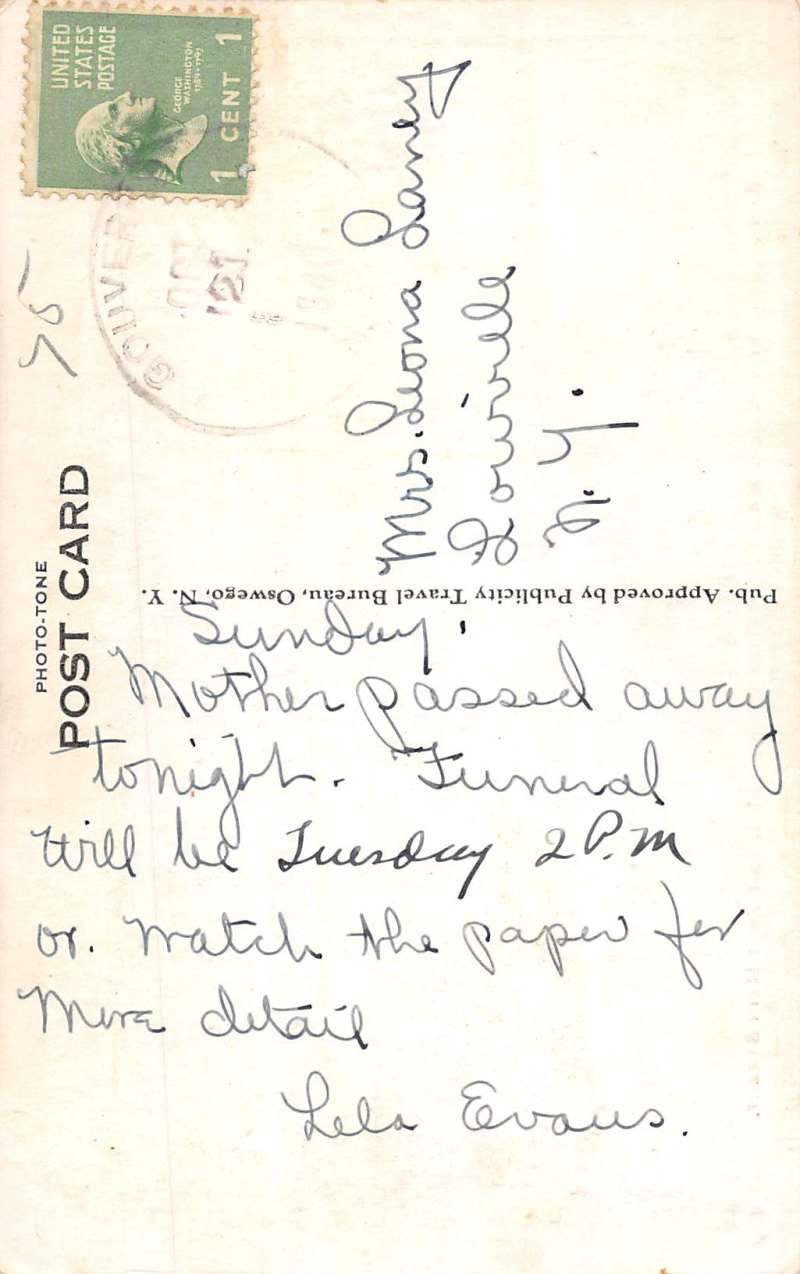 UNITED
STATES
POSTAGE
GEORGE
WASHINGTON
1789-1797
1 CENT 1
GOUVER
OCT
21
PHOTO-TONE
POST CARD
Mrs. Leona Laney
Lowville
N. Y.
Pub. Approved by Publicity Travel Bureau, Oswego, N. Y.
Sunday.
Mother passed away
tonight. Funeral
will be Tuesday 2 P.M
or. watch the paper for
More detail
Lela Evans.